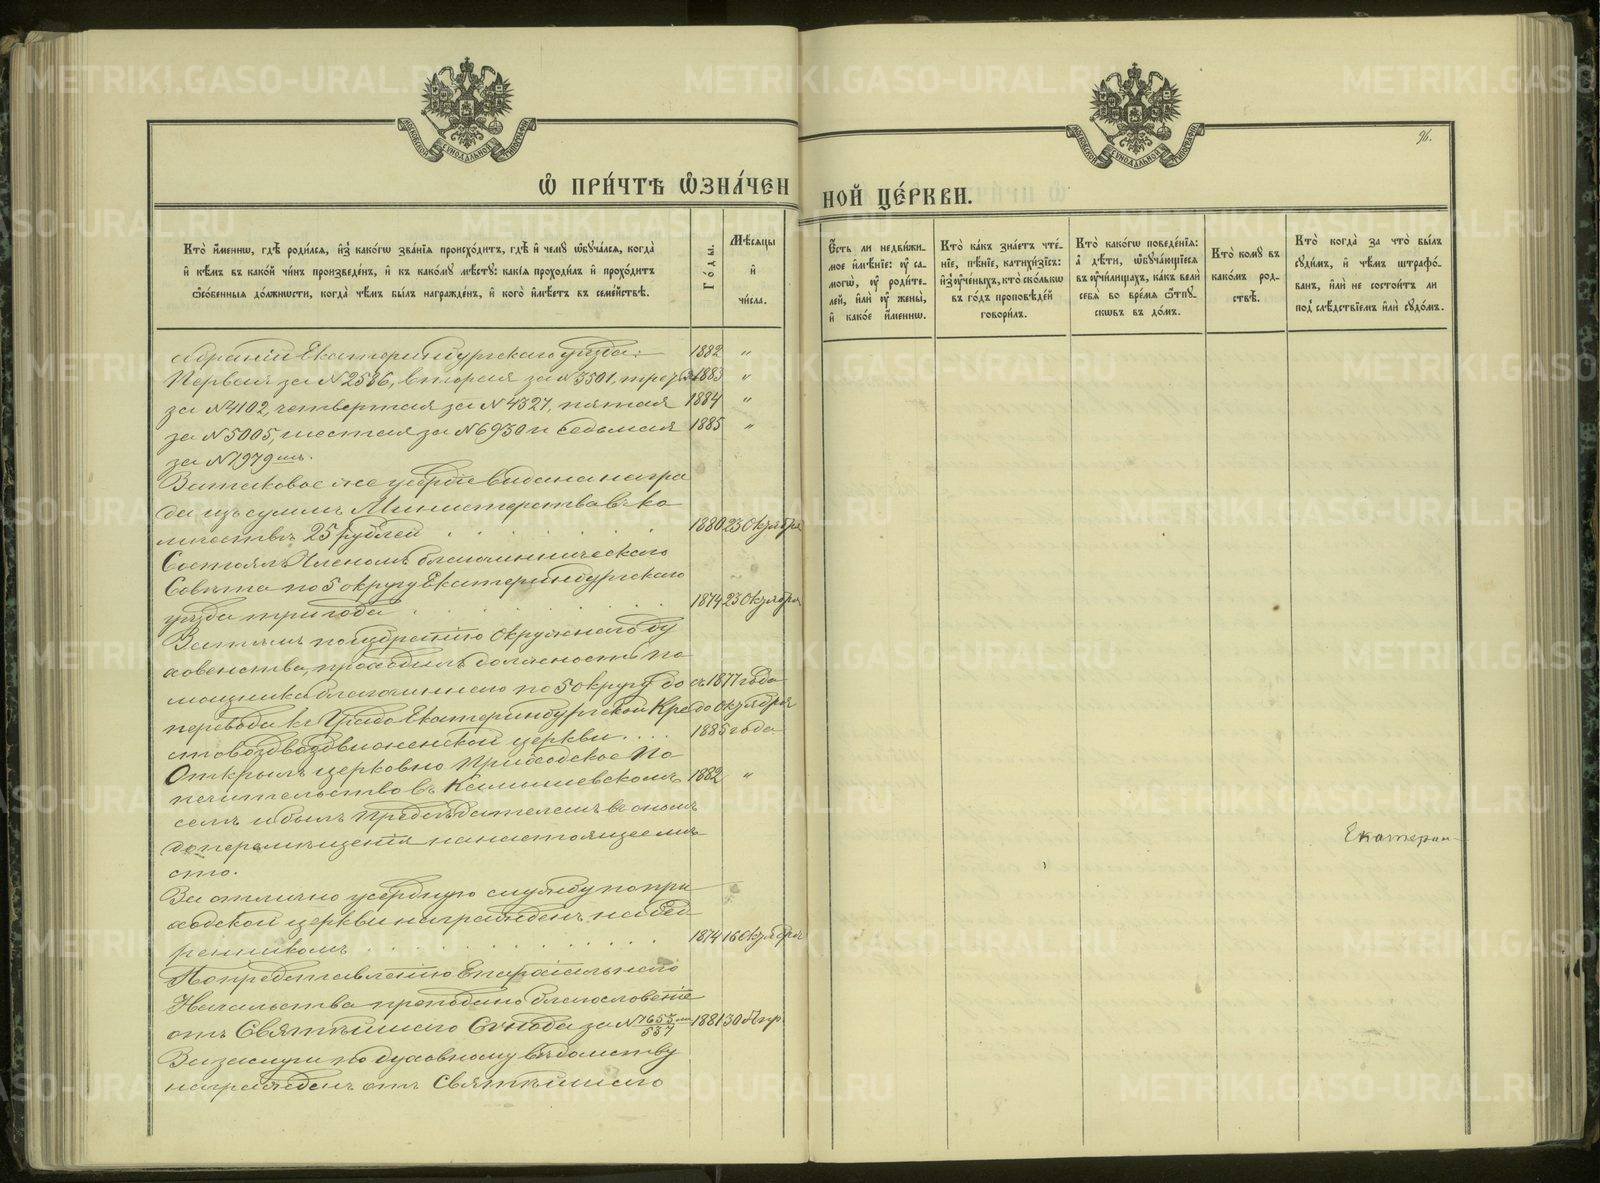 96.
Ѡ ПРИ́ЧТѢ Ѡ҆ЗНА́ЧЕННОЙ ЦЕ́РКВИ.
Кто̀ и҆́меннѡ, гдѣ̀ роди́лся, и҆з̾ како́гѡ зва́нїя происхо́дитъ, гдѣ̀ и҆ чемꙋ̀ ѡ҆бꙋча́лся, когда̀
и҆ кѣ́мъ въ како́й чи́нъ произведе́нъ, и҆ къ како́мꙋ мѣ́стꙋ: какі́я проходи́лъ и҆ прохо́дитъ
ѻ҆со́бенныя до́лжности, когда̀ чѣ́мъ бы́лъ награжде́нъ, и҆ кого̀ и҆мѣ́етъ въ семе́йствѣ.
Го́ды.
Мѣ́сяцы
и҆
чи́сла.
Е҆́сть ли недви́жи-
мое и҆мѣ́нїе: ᲂу҆ са-
могѡ̀, ᲂу҆ роди́те-
лей, и҆лѝ ᲂу҆ жены̀,
и҆ како́е и҆́меннѡ.
Кто̀ ка́къ зна́етъ чте́-
нїе, пѣ́нїе, катихи́зїсъ:
и҆з̾ ᲂу҆че́ныхъ, кто̀ ско́лькѡ
въ го́дъ проповѣ́дей
говори́лъ.
Кто̀ како́гѡ поведе́нїя:
а҆ дѣ́ти, ѡ҆бꙋча́ющїеся
въ ᲂу҆чи́лищахъ, ка́къ велѝ
себѧ̀ во вре́мя ѿпꙋ-
скѡвъ въ до́мъ.
Кто̀ комꙋ̀ въ
како́мъ род-
ствѣ̀.
Кто̀ когда̀ за что̀ бы́лъ
сꙋди́мъ, и҆ чѣ́мъ штрафо́-
ванъ, и҆лѝ не состои́тъ ли
под̾ слѣ́дствїемъ и҆лѝ сꙋдо́мъ.
обраніи Екатеринбургскаго уѣзда: 1882 „
Первая за №2586, вторая за №3501, третья 1883 „
за №4102, четвертая за №4327, пятая 1884 „
за №5005, шестая за №6930 и седьмая 1885 „
за №1979мъ.
За таковое же усердіе выдана награ
да изъ суммъ Министерства въ ко
личествѣ 25 рублей . . . . 1880 23 Октября
Состоялъ Членомъ благочинническаго
Совѣта по 5 округу Екатеринбургскаго
уѣзда три года . . . . . . 1874 23 Октября
Затѣмъ по избранію Окружнаго Ду
ховенства, проходилъ должность по
мощника благочиннаго по 5 округу до съ 1877 года
перевода къ Градо Екатеринбургской Кре до Октября
стовоздвиженской церкви . . . . 1885 года
Открылъ церковно Приходское По
печительство въ Камышевскомъ 1882 „
селѣ и былъ Предсѣдателемъ въ ономъ
до перемѣщенія на настоящее мѣ
сто.
За отлично усердную службу по при
ходской церкви награжденъ набед
ренникомъ . . . . . . . . . 1874 16 Октября
По представленію Епархіальнаго
Начальства преподано благословеніе
отъ Святѣйшаго Синода за № 1653/557 1881 30 Апр.
За заслуги по духовному вѣдомству
награжденъ отъ Святѣйшаго
Екатерин-